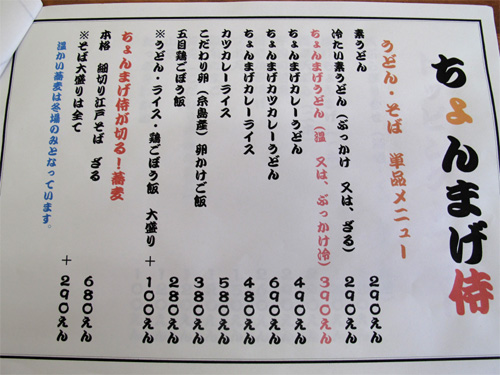 ちょんまげ侍
うどん・そば 単品メニュー
素うどん 290えん
冷たい素うどん(ぶっかけ 又は、ざる) 290えん
ちょんまげうどん(温 又は、ぶっかけ冷) 390えん
ちょんまげカレーうどん 490えん
ちょんまげカツカレーうどん 690えん
ちょんまげカレーライス 480えん
カツカレーライス 580えん
こだわり卵(糸島産)卵かけご飯 380えん
五目鶏ごぼう飯 280えん
※うどん・ライス・鶏ごぼう飯 大盛り+100えん
ちょんまげ侍が切る!蕎麦
本格 細切り江戸そば ざる 680えん
※そば大盛りは全て +290えん
温かい蕎麦は冬場のみとなっています。